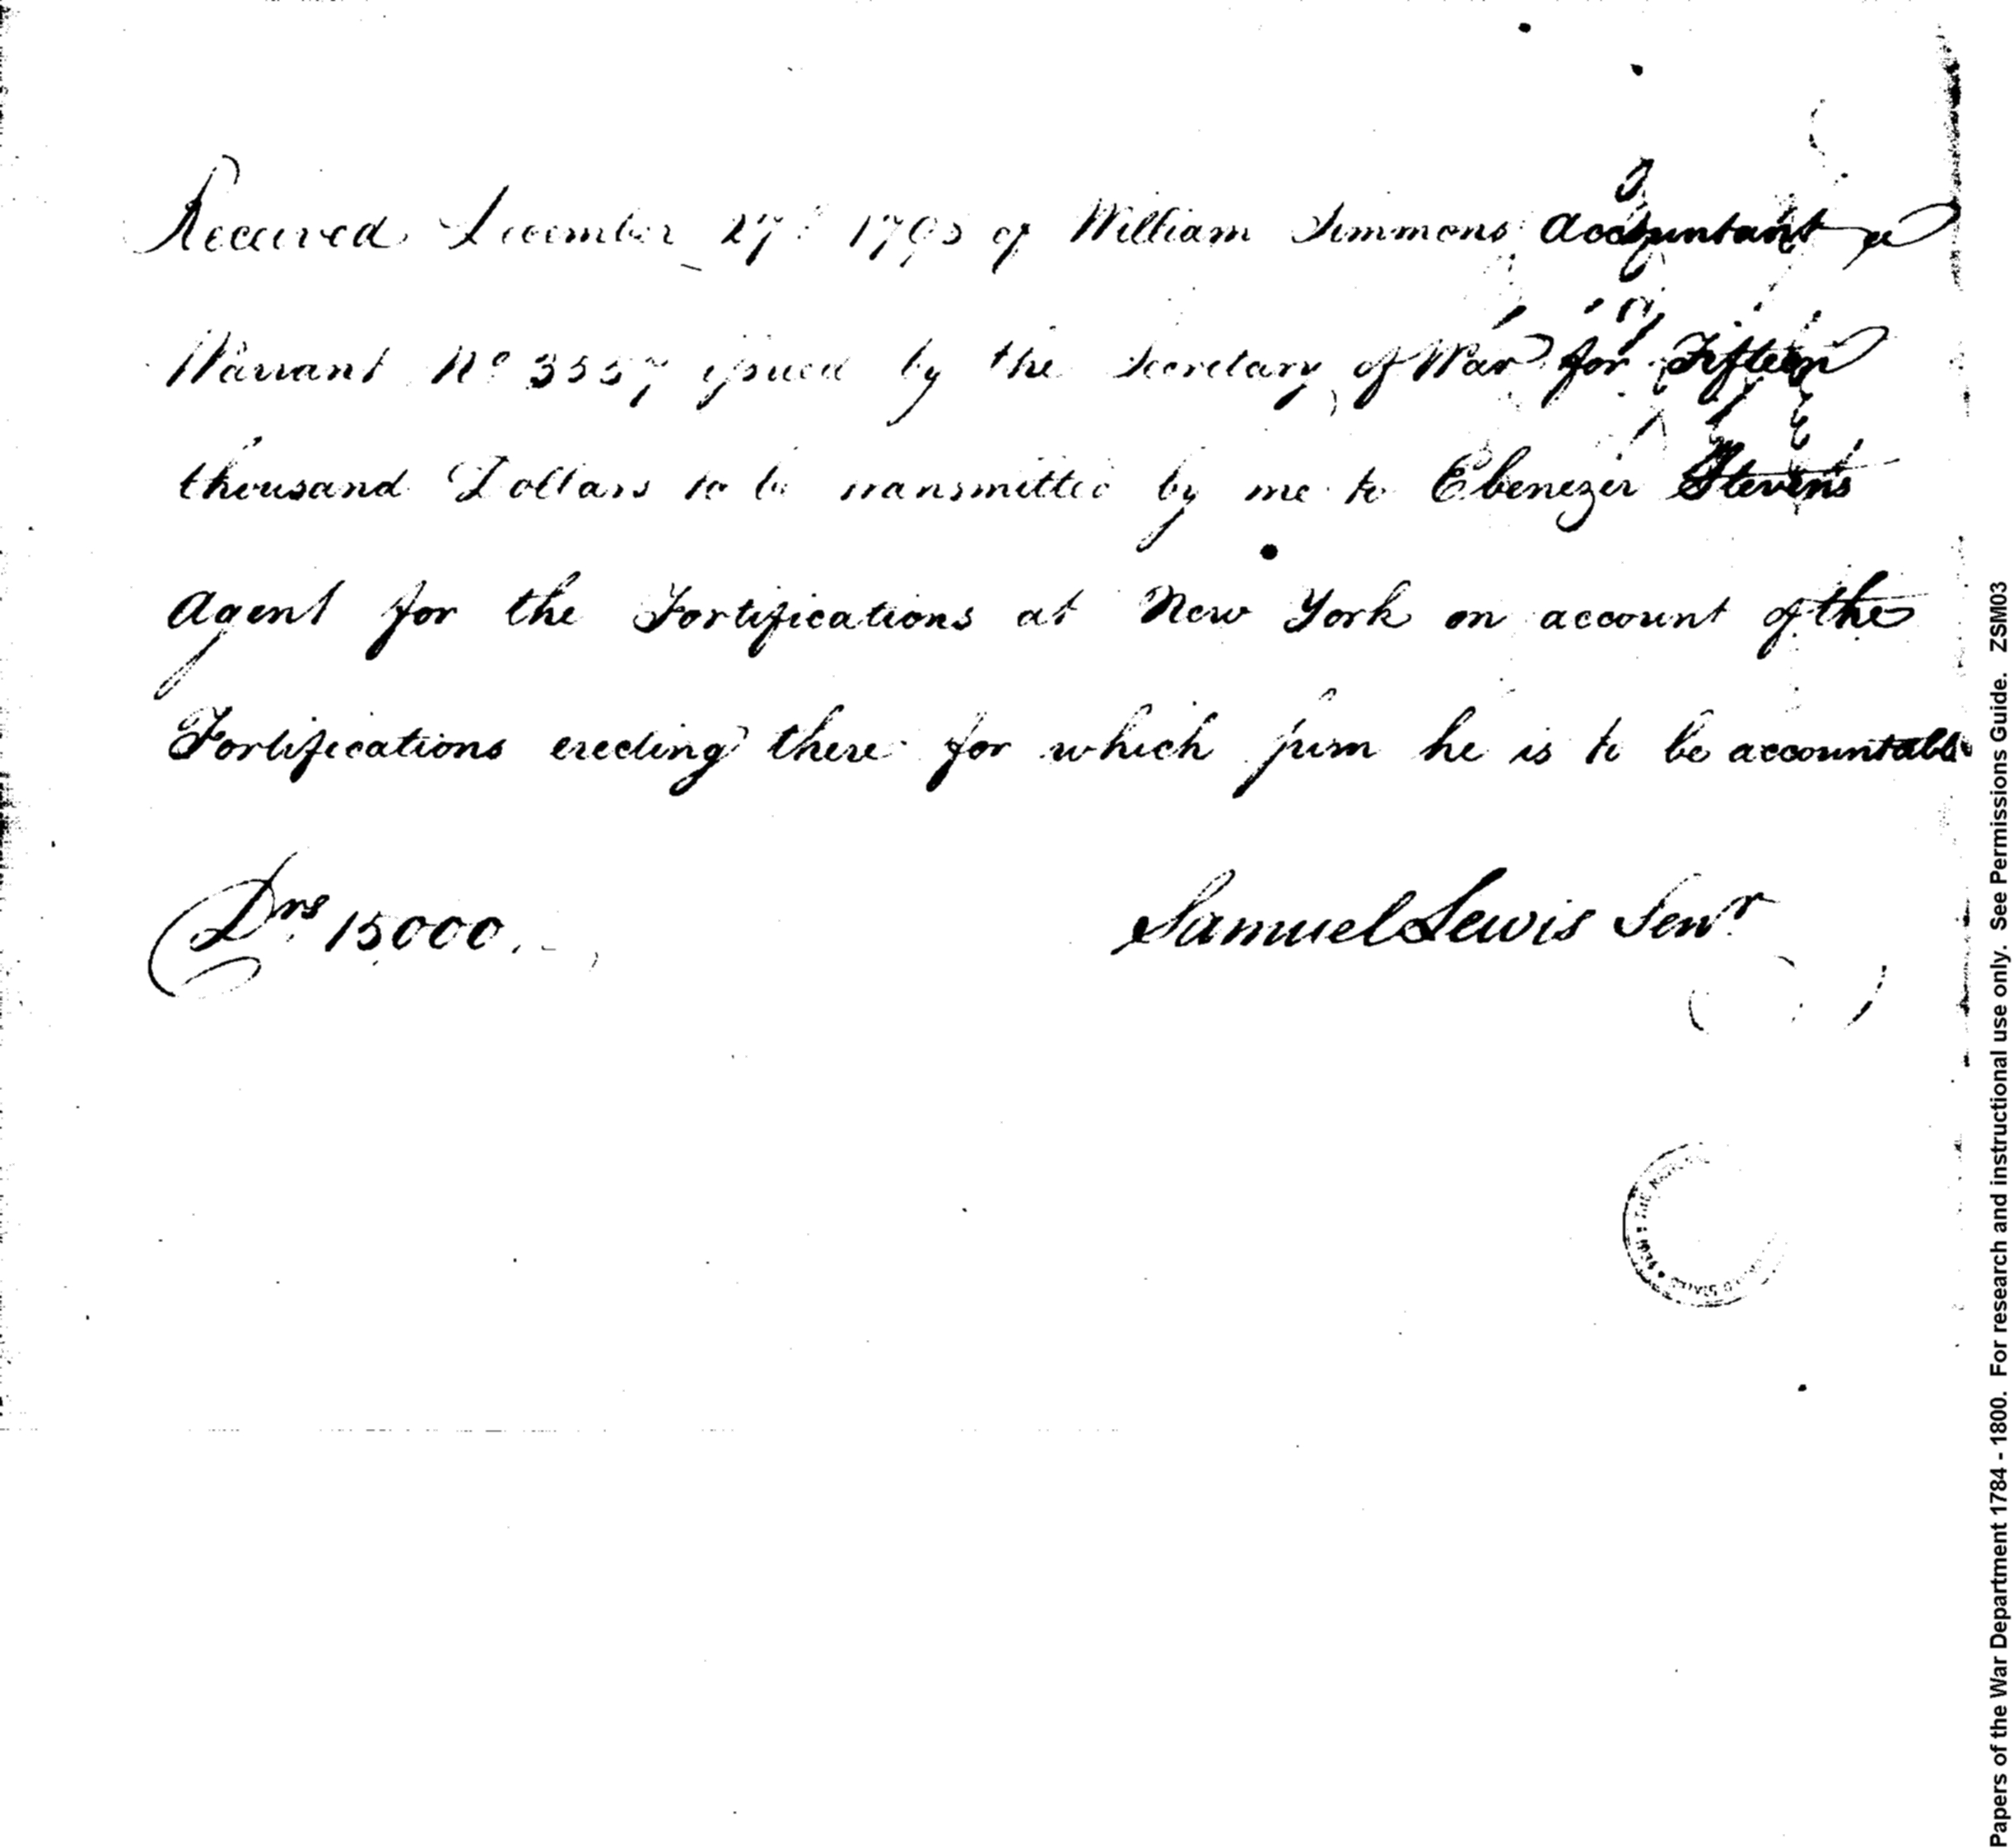 Received December 27th 1795 of William Simmons Accountant a
Warrant No 3557 issued by the Secretary of War for Fifteen
thousand Dollars to be transmitted by me to Ebenezer Stevens
Agent for the Fortifications at New York on account of the
Fortifications erecting there for which sum he is to be accountable
Drs 15000.
Samuel Lewis Senr
Papers of the War Department 1784 - 1800. For research and instructional use only. See Permissions Guide. ZSM03